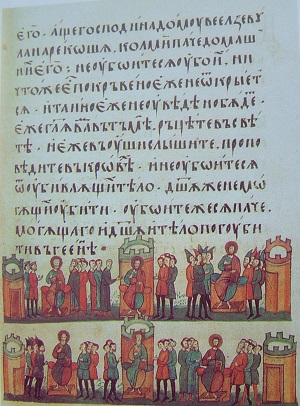 его. аще господина домоу веелзевꙋ
ла нарекошѧ, колми паче домаш
нѧѧ его : не оубоите сѧ оубо их. ни
чтоже ес покръвено еже не ѿкрыет
сѧ. и таино еже не оувѣдѣно бѫдет.
еже глѧ вамь въ тъмѣ, рьцѣте въ свѣ
тѣ. и еже въ оуши слышите, пропо
вѣдите въ кровѣх. и не оубоите сѧ
ѿ оубиваѧщих тѣло. дшѧ же не мо
гѫщих оубити. оубоите же сѧ паче
могѫщаго и дшѫ и тѣло погоуби
ти въ геенѣ